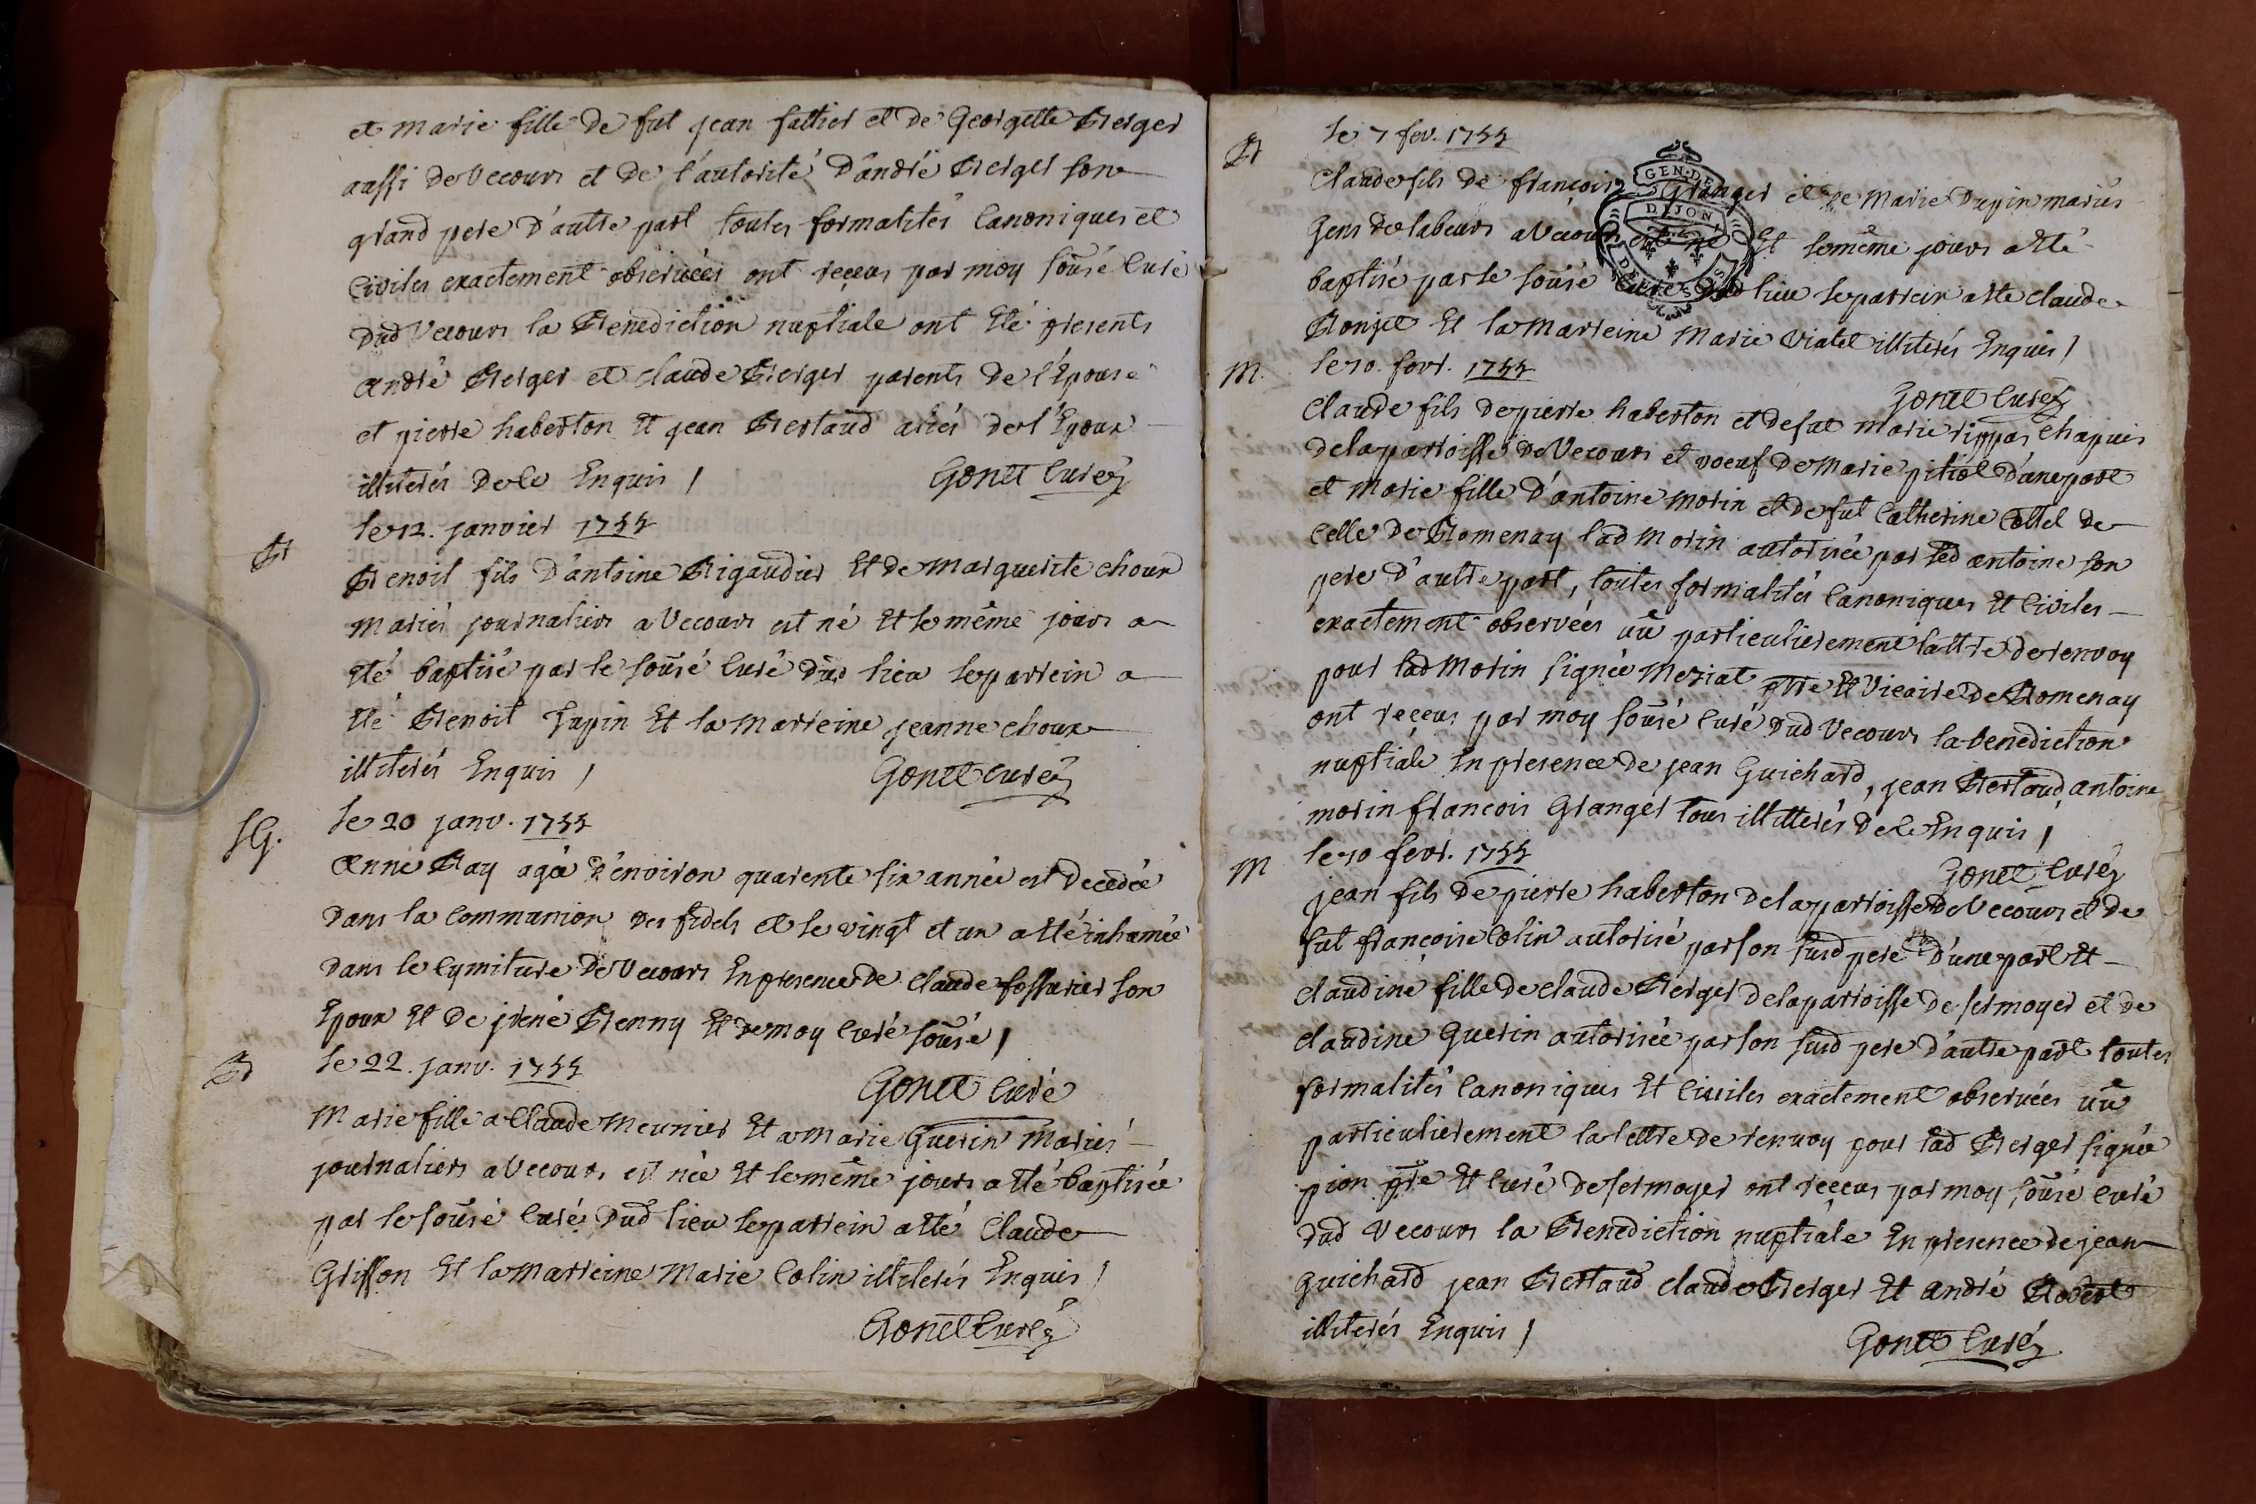 et marie fille de fut jean fattier et de Georgette Berger
aussi de Vecours et de l'autorité d'andré Berger son
grand pere d'autre part toutes formalités canoniques et
civiles exactement observées ont reçeus par moy sousé curé
dud Vecours la Benediction nuptiale ont été presents
andré Berger et claude Berger parents de l'Epouse
et pierre haberton Et jean Bertaud aliés de l'Epoux
illiterés de ce Enquis /
Gonet curé
B
le 12. janvier 1755
Benoit fils d'antoine Rigaudier Et de marguerite choux
mariés journaliers a Vecours est né Et le même jours a
eté baptisé par le sousé curé dud lieu le parrein a
eté Benoit Et la marreine jeanne choux
illiterés Enquis /
Gonet curé
SG.
le 20 janv. 1755
anne Ray agée d'environ quarente six année est decedée
dans la communion des fidels et le vingt et un a eté inhumée
dans le cymiture de Vecours En presence de claude fosserier son
Epoux Et de Benny Et de moy curé sousé /
Gonet curé
B
le 22. janv. 1755
Marie fille a Claude Meunier Et a Marie Guerin Mariés
journaliers a Vecours est née Et le même jours a eté baptisée
par le sousé curé dud lieu le parrein a eté Claude
Griffon Et la marreine Marie Colin illiterés Enquis /
Gonet curé
B
le 7 fev. 1755
Claude fils de françois Granger et de Marie Dupin mariés
Gens de labeurs a Vecours est né Et le même jours a eté
baptisé par le sousé curé dud lieu le parrein a eté claude
Et la marreine Marie Viatel illiterés Enquis /
GEN. DE
DIJON
Gonet curé
M.
le 10. fevr. 1755
Claude fils de pierre haberton et de fut marie rippas chapuis
de la parroisse de Vecours et voeuf de Marie pitiol d'une part
et Marie fille d'antoine Morin et de fut Catherine Cottel de
celle de Romenay lad Morin autorisée par led antoine son
pere d'autre part, toutes formalités canoniques Et civiles
exactement observées vû particulierement lattre de renvoy
pour lad Morin signée Meziat ptre Et Vicaire de Romenay
ont reçeus par moy sousé curé dud Vecours la benediction
nuptiale En presence de jean Guichard, jean Bertaud antoine
morin françois Granger tous illitterés de ce Enquis /
Gonet curé
M
le 10 fevr. 1755
jean fils de pierre haberton de la parroisse de Vecours et de
fut françoise Colin autorisé par son susd pere d'une part Et
claudine fille de claude Berger de la parroisse de sermoyer et de
claudine Guerin autorisée par son susd pere d'autre part toutes
formalités canoniques Et civiles exactement observées vû
particulierement la lettre de renvoy pour lad Berger signée
pion ptre Et curé de sermoyer ont reçeus par moy sousé curé
dud Vecours la Benediction nuptiale En presence de jean
guichard jean Bertaud claude Berger Et andré
illiterés Enquis /
Gonet curé